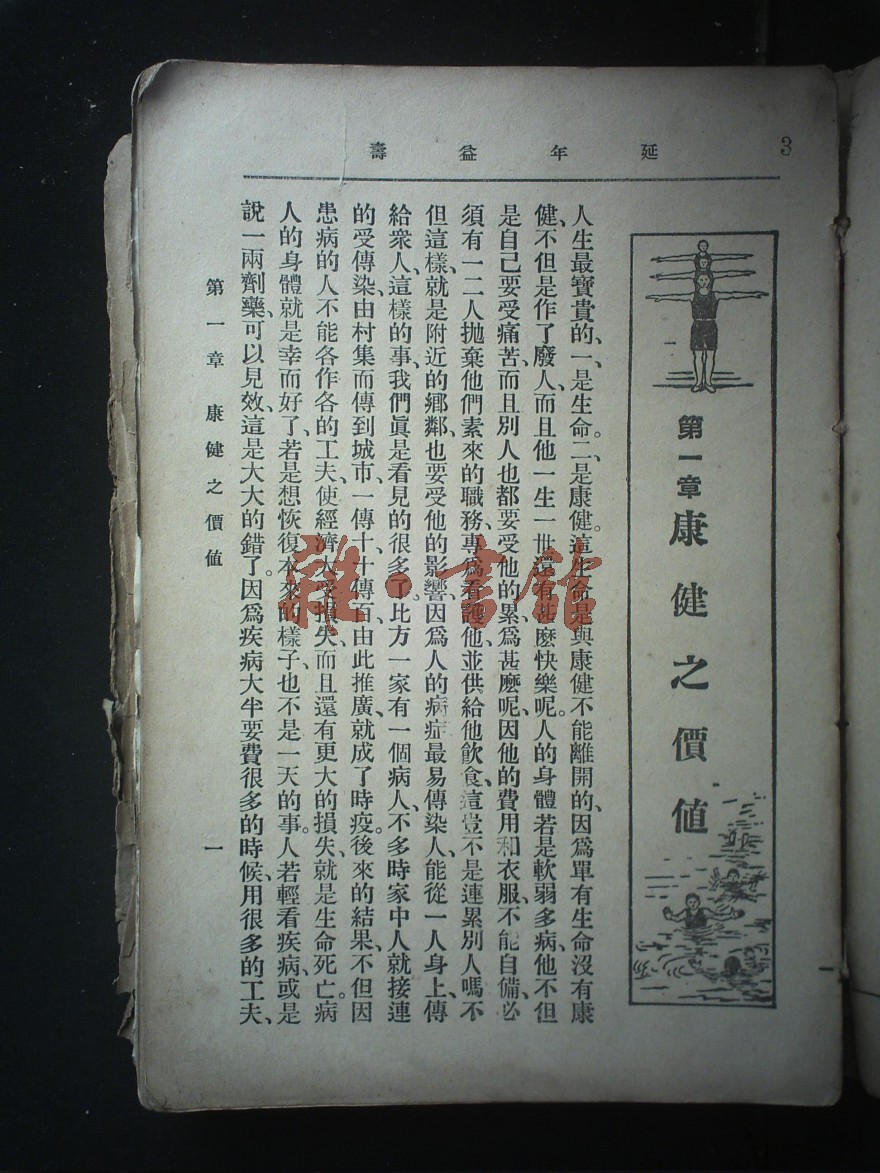 3
延年益壽
第一章 康健之價值
人生最寶貴的、一、是生命。二、是康健。這生命是與康健不能離開的、因爲單有生命沒有康
健、不但是作了廢人、而且他一生一世還有甚麽快樂呢。人的身體若是軟弱多病、他不但
是自己要受痛苦、而且別人也都要受他的累、爲甚麽呢、因他的費用和衣服、不能自備、必
須有一二人拋棄他們素來的職務、專爲看護他、並供給他飲食、這豈不是連累別人嗎、不
但這樣、就是附近的鄉鄰、也要受他的影響、因爲人的病症最易傳染人、能從一人身上、傳
給衆人、這樣的事、我們眞是看見的很多了。比方一家有一個病人、不多時家中人就接連
的受傳染、由村集而傳到城市、一傳十、十傳百、由此推廣、就成了時疫。後來的結果、不但因
患病的人不能各作各的工夫、使經濟大受損失、而且還有更大的損失、就是生命死亡。病
人的身體就是幸而好了、若是想恢復本來的樣子、也不是一天的事。人若輕看疾病、或是
說一兩劑藥、可以見效、這是大大的錯了。因爲疾病大半要費很多的時候、用很多的工夫、
第一章 康健之價值
一
雜·書館